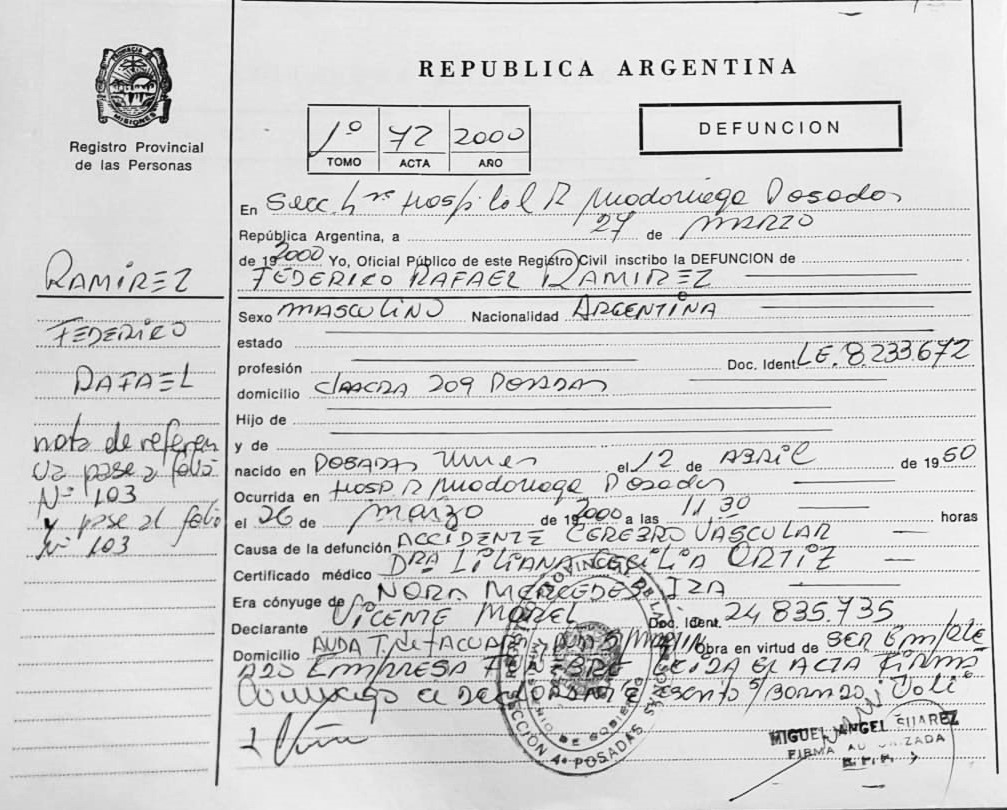 PROVINCIA DE MISIONES
Registro Provincial
de las Personas
REPUBLICA ARGENTINA
1º 72 2000
TOMO ACTA AÑO
DEFUNCION
En Secc. 4ª Hosp. R Posadas
República Argentina, a 27 de MARZO
de 19 2000 Yo, Oficial Público de este Registro Civil inscribo la DEFUNCION de
FEDERICO RAFAEL RAMIREZ
Sexo MASCULINO Nacionalidad ARGENTINA
estado
profesión Doc. Ident. L.E. 8.233.672
domicilio CHACRA 209 POSADAS
Hijo de
y de
nacido en POSADAS Mnes el 12 de ABRIL de 19 50
Ocurrida en HOSP. R Posadas
el 26 de MARZO de 19 2000 a las 11.30 horas
Causa de la defunción ACCIDENTE CEREBRO VASCULAR
Certificado médico DRA LILIANA CECILIA ORTIZ
Era cónyuge de NORA MERCEDES
Declarante VICENTE MOREL Doc. Ident. 24.835.735
Domicilio AVDA T. de TACUARI Obra en virtud de SER Emplea
DO EMPRESA LEIDA el ACTA FIRMA
conmigo el DECLARANTE
RAMIREZ
FEDERICO
RAFAEL
nota de referen
cia pase a folio
Nº 103
y pase al folio
Nº 103
REGISTRO PROVINCIAL DE LAS PERSONAS
MINISTERIO DE GOBIERNO
SECCIÓN 4ª POSADAS
MIGUEL ANGEL SUAREZ
FIRMA AUTORIZADA